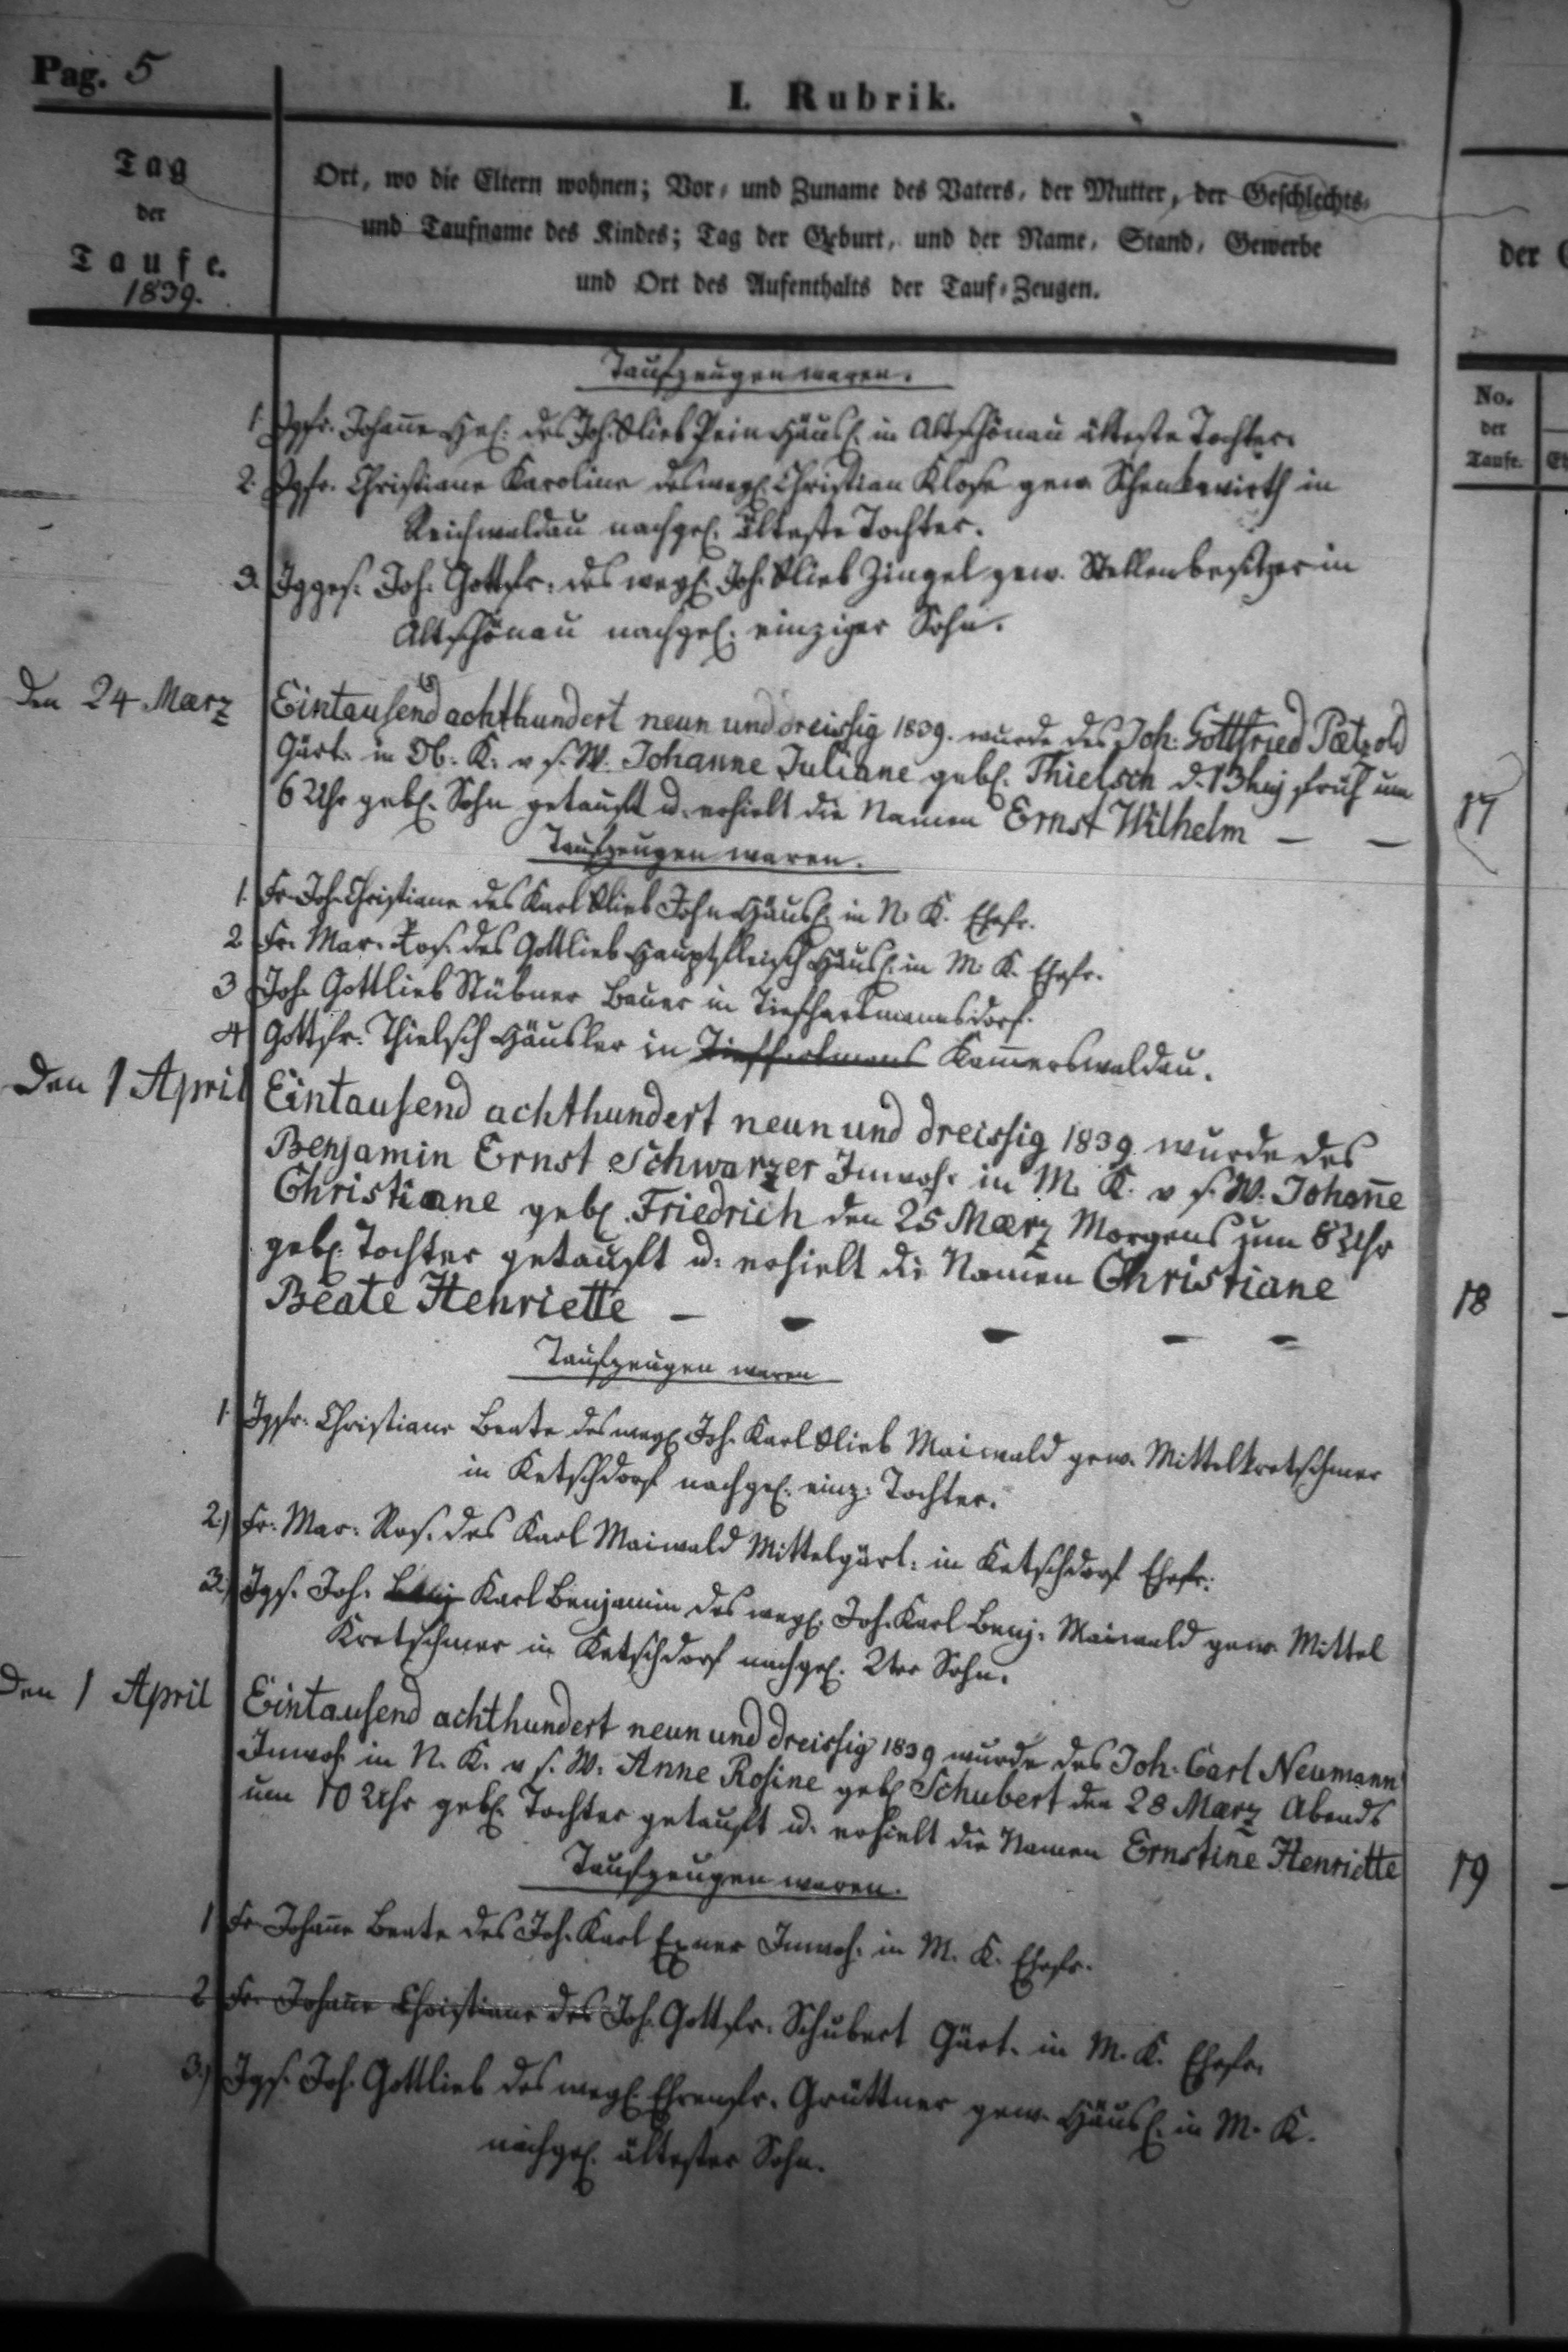 Pag. 5
I. Rubrik.
Tag
der
Taufe.
1839.
Ort, wo die Eltern wohnen; Vor- und Zuname des Vaters, der Mutter, der Geschlechts-
und Taufname des Kindes; Tag der Geburt, und der Name, Stand, Gewerbe
und Ort des Aufenthalts der Tauf-Zeugen.
der
No.
der
Taufe.
Taufzeugen waren.
1. Jgfr. Johan̄e Hel: des Joh. Glieb Häusl. in Altschönau älteste Tochter.
2. Jgfr. Christiane Karoline des wegl. Christian Klose gew. Schenkwirth in
Reichwaldau nachgel. älteste Tochter.
3. Jgges. Joh. Gottfr. des wegl. Joh. Glieb Zingel gew. Stellenbesitzer in
Altschönau nachgel. einziger Sohn.
den 24 Maerz
Eintausend achthundert neun und dreissig 1839. wurde des Joh. Gottfried Pätzold
Gärt. in Ob. K. v s. W. Johanne Juliane gebl. Thielsch d. 13 huj früh um
6 Uhr gebl. Sohn getauft u. erhielt die Namen Ernst Wilhelm — —
17
Taufzeugen waren.
1. Fr. Joh. Christiane des Karl Glieb John Häusl. in N. K. Ehefr.
2 Fr. Mar. Ros. des Gottlieb Hauptfleisch Häusl. in M. K. Ehefr.
3 Joh. Gottlieb Stübner Bauer in Tiefhartmannsdorf.
4 Gottfr. Thielsch Häusler in Tiefhartmans Kam̄erswaldau.
Den 1 April
Eintausend achthundert neun und dreissig 1839 wurde des
Benjamin Ernst Schwarzer Inwoh. in M. K. v s. W. Johan̄e
Christiane gebl. Friedrich den 25 Maerz Morgens um 8 Uhr
gebl. Tochter getauft u. erhielt die Namen Christiane
Beate Henriette — — — — —
18
Taufzeugen waren
1. Jgfr. Christiane Beate des wegl. Joh. Karl Glieb Maiwald gew. Mittelkretschmer
in Ketschdorf nachgel. einz. Tochter.
2.) Fr. Mar. Ros. des Karl Maiwald Mittelgärt. in Ketschdorf Ehefr.
3.) Jgs. Joh. Benj Karl Benjamin des wegl. Joh. Karl Benj. Maiwald gew. Mittel
Kretschmer in Ketschdorf nachgel. 2ter Sohn.
Den 1 April
Eintausend achthundert neun und dreissig 1839 wurde des Joh. Carl Neumann
Inwoh. in N. K. v s. W. Anne Rosine gebl Schubert den 28 Maerz Abends
um 10 Uhr gebl. Tochter getauft u. erhielt die Namen Ernstine Henriette
19
Taufzeugen waren.
1 Fr. Johan̄e Beate des Joh. Karl Exner Inwoh. in M. K. Ehefr.
2 Fr. Johan̄e Christiane des Joh. Gottfr. Schubert Gärt. in M. K. Ehefr.
3.) Jgs. Joh. Gottlieb des wegl. Ehrenfr. Grüttner gew. Häusl. in M. K.
nachgel. ältester Sohn.